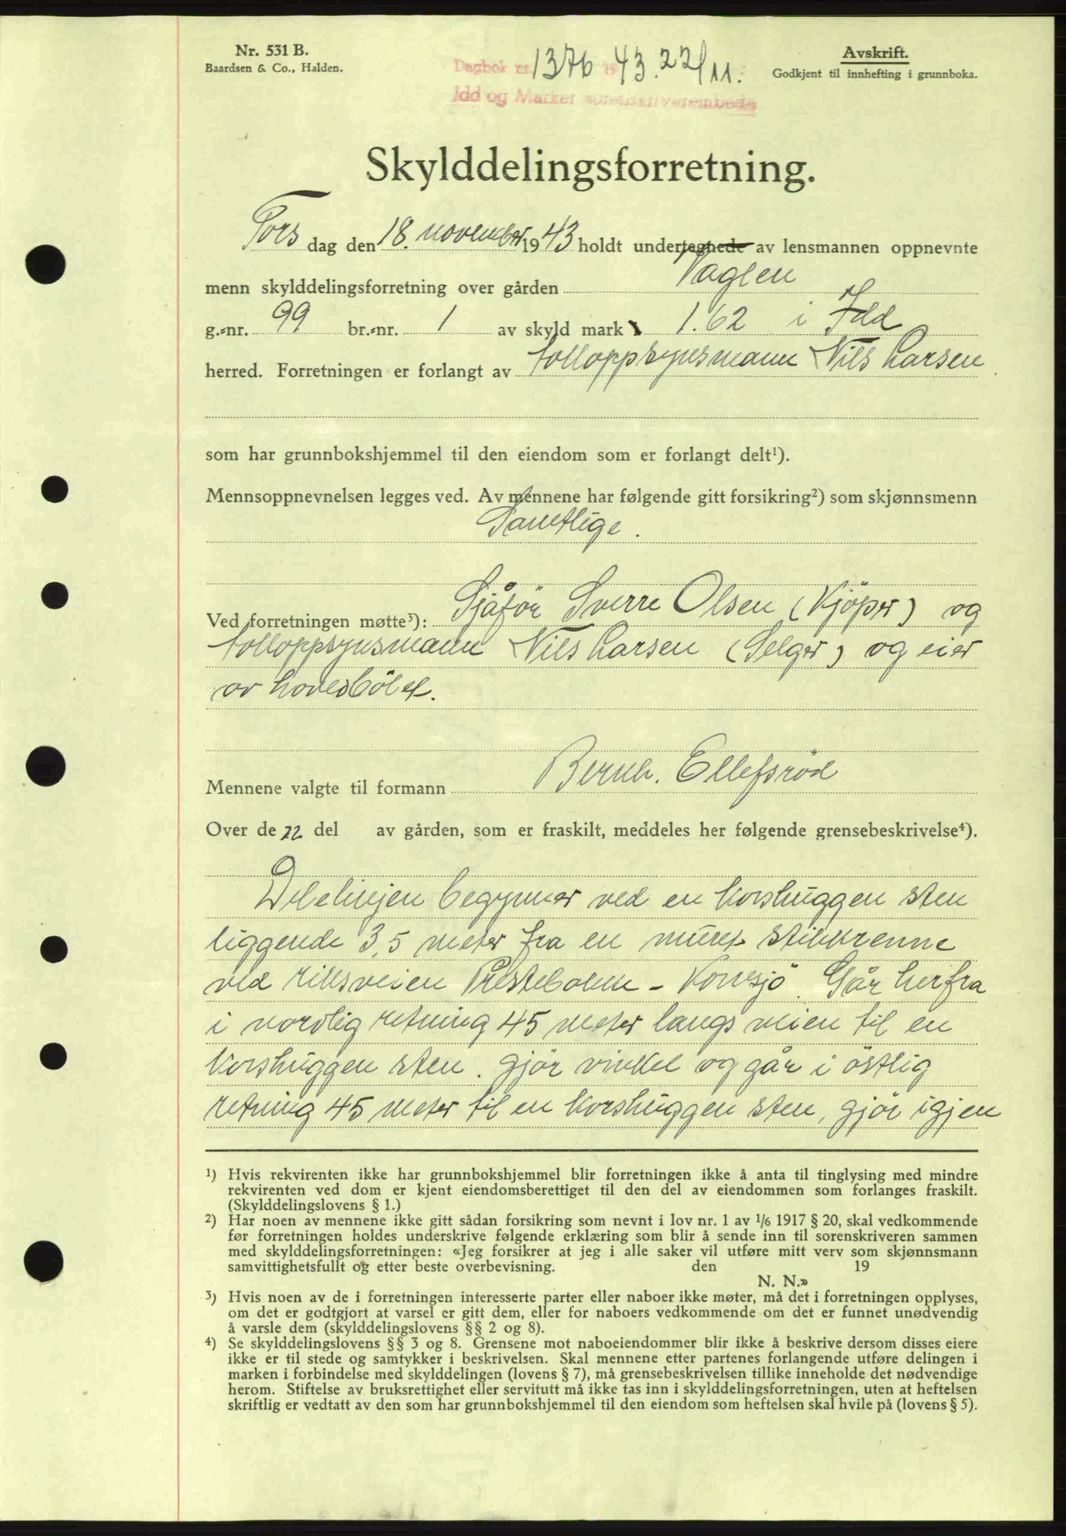 Nr. 531 B.
Baardsen & Co., Halden.
Avskrift.
Godkjent til innhefting i grunnboka.
Dagbok nr. 1376 19 43. 22/11.
Idd og Marker sorenskriverembede
Skylddelingsforretning.
Tors dag den 18. november 1943 holdt undertegnede av lensmannen oppnevnte
menn skylddelingsforretning over gården Vaglen
g.-nr. 99 br.-nr. 1 av skyld mark 1.62 i Idd
herred. Forretningen er forlangt av tolloppsynsmann Nils Larsen
som har grunnbokshjemmel til den eiendom som er forlangt delt¹).
Mennsoppnevnelsen legges ved. Av mennene har følgende gitt forsikring²) som skjønnsmenn
Samtlige.
Ved forretningen møtte³): Sjåför Sverre Olsen (Kjöper) og
tolloppsynsmann Nils Larsen (Selger) og eier
av hovedbölet.
Mennene valgte til formann Bernh. Ellefsröd
Over de n del av gården, som er fraskilt, meddeles her følgende grensebeskrivelse⁴).
Delelinjen begynner ved en korshuggen sten
liggende 3,5 meter fra en muret stikkrenne
ved riksveien Prestebakke - Kornsjö. Går herfra
i nordlig retning 45 meter langs veien til en
korshuggen sten, gjör vinkel og går i östlig
retning 45 meter til en korshuggen sten, gjör igjen
¹) Hvis rekvirenten ikke har grunnbokshjemmel blir forretningen ikke å anta til tinglysing med mindre
rekvirenten ved dom er kjent eiendomsberettiget til den del av eiendommen som forlanges fraskilt.
(Skylddelingslovens § 1.)
²) Har noen av mennene ikke gitt sådan forsikring som nevnt i lov nr. 1 av 1/6 1917 § 20, skal vedkommende
før forretningen holdes underskrive følgende erklæring som blir å sende inn til sorenskriveren sammen
med skylddelingsforretningen: «Jeg forsikrer at jeg i alle saker vil utføre mitt verv som skjønnsmann
samvittighetsfullt og etter beste overbevisning. den 19
N. N.»
³) Hvis noen av de i forretningen interesserte parter eller naboer ikke møter, må det i forretningen opplyses,
om det er godtgjort at varsel er gitt dem, eller for naboers vedkommende om det er funnet unødvendig
å varsle dem (skylddelingslovens §§ 2 og 8).
⁴) Se skylddelingslovens §§ 3 og 8. Grensene mot naboeiendommer blir ikke å beskrive dersom disses eiere
ikke er til stede og samtykker i beskrivelsen. Skal mennene etter partenes forlangende utføre delingen i
marken i forbindelse med skylddelingen (lovens § 7), må grensebeskrivelsen tillike inneholde det nødvendige
herom. Stiftelse av bruksrettighet eller servitutt må ikke tas inn i skylddelingsforretningen, uten at heftelsen
skriftlig er vedtatt av den som har grunnbokshjemmel til den eiendom som heftelsen skal hvile på (lovens § 5).